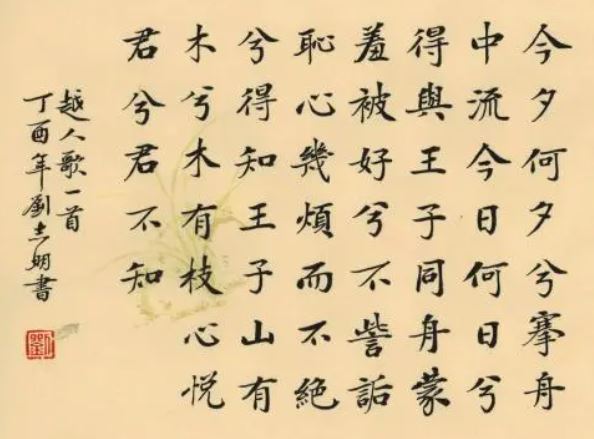 今夕何夕兮搴舟
中流今日何日兮
得與王子同舟蒙
羞被好兮不訾詬
恥心幾煩而不絕
兮得知王子山有
木兮木有枝心悦
君兮君不知
越人歌一首
丁酉年劉志明書
劉